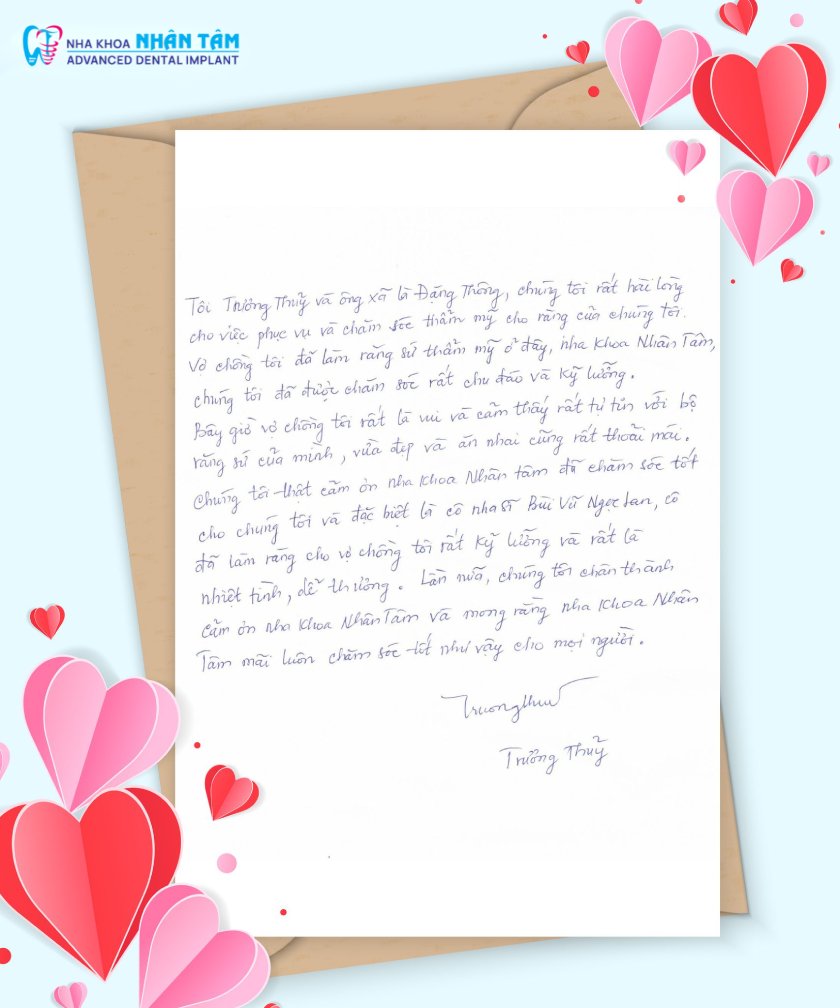 NHA KHOA NHÂN TÂM
ADVANCED DENTAL IMPLANT
Tôi Trưởng Thuỷ và ông xã là Đặng Thông, chúng tôi rất hài lòng
cho việc phục vụ và chăm sóc thẩm mỹ cho răng của chúng tôi.
Vợ chồng tôi đã làm răng sứ thẩm mỹ ở đây, nha khoa Nhân Tâm,
chúng tôi đã được chăm sóc rất chu đáo và kỹ lưỡng.
Bây giờ vợ chồng tôi rất là vui và cảm thấy rất tự tin với bộ
răng sứ của mình, vừa đẹp và ăn nhai cũng rất thoải mái.
Chúng tôi thật cảm ơn nha khoa Nhân tâm đã chăm sóc tốt
cho chúng tôi và đặc biệt là cô nha sĩ Bùi Vũ Ngọc Lan, cô
đã làm răng cho vợ chồng tôi rất kỹ lưỡng và rất là
nhiệt tình, dễ thương. Lần nữa, chúng tôi chân thành
cảm ơn nha khoa Nhân Tâm và mong rằng nha khoa Nhân
Tâm mãi luôn chăm sóc tốt như vậy cho mọi người.
Trưởng Thuỷ